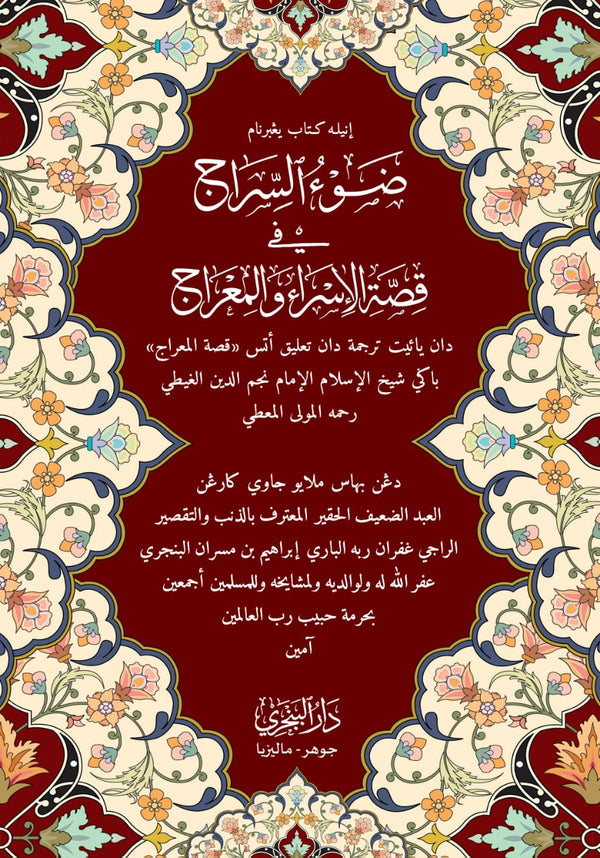 إنيله كتاب يڠبرنام
ضَوْءُ ٱلسِّرَاجِ
فِي
قِصَّةِ الْإِسْرَاءِ وَالْمِعْرَاجِ
دان يائيت ترجمة دان تعليق أتس «قصة المعراج»
باڬي شيخ الإسلام الإمام نجم الدين الغيطي
رحمه المولى المعطي
دڠن بهاس ملايو جاوي كارڠن
العبد الضعيف الحقير المعترف بالذنب والتقصير
الراجي غفران ربه الباري إبراهيم بن مسران البنجري
غفر الله له ولوالديه ولمشايخه وللمسلمين أجمعين
بحرمة حبيب رب العالمين
آمين
دَارُ ٱلبَنْجَرِي
جوهر - ماليزيا